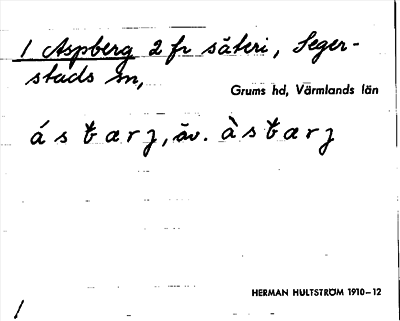 1 Aspberg 2 fr säteri, Seger-
stads sn,
Grums hd, Värmlands län
á s t æ r j, äv. à s t æ r j
HERMAN HULTSTRÖM 1910–12
1